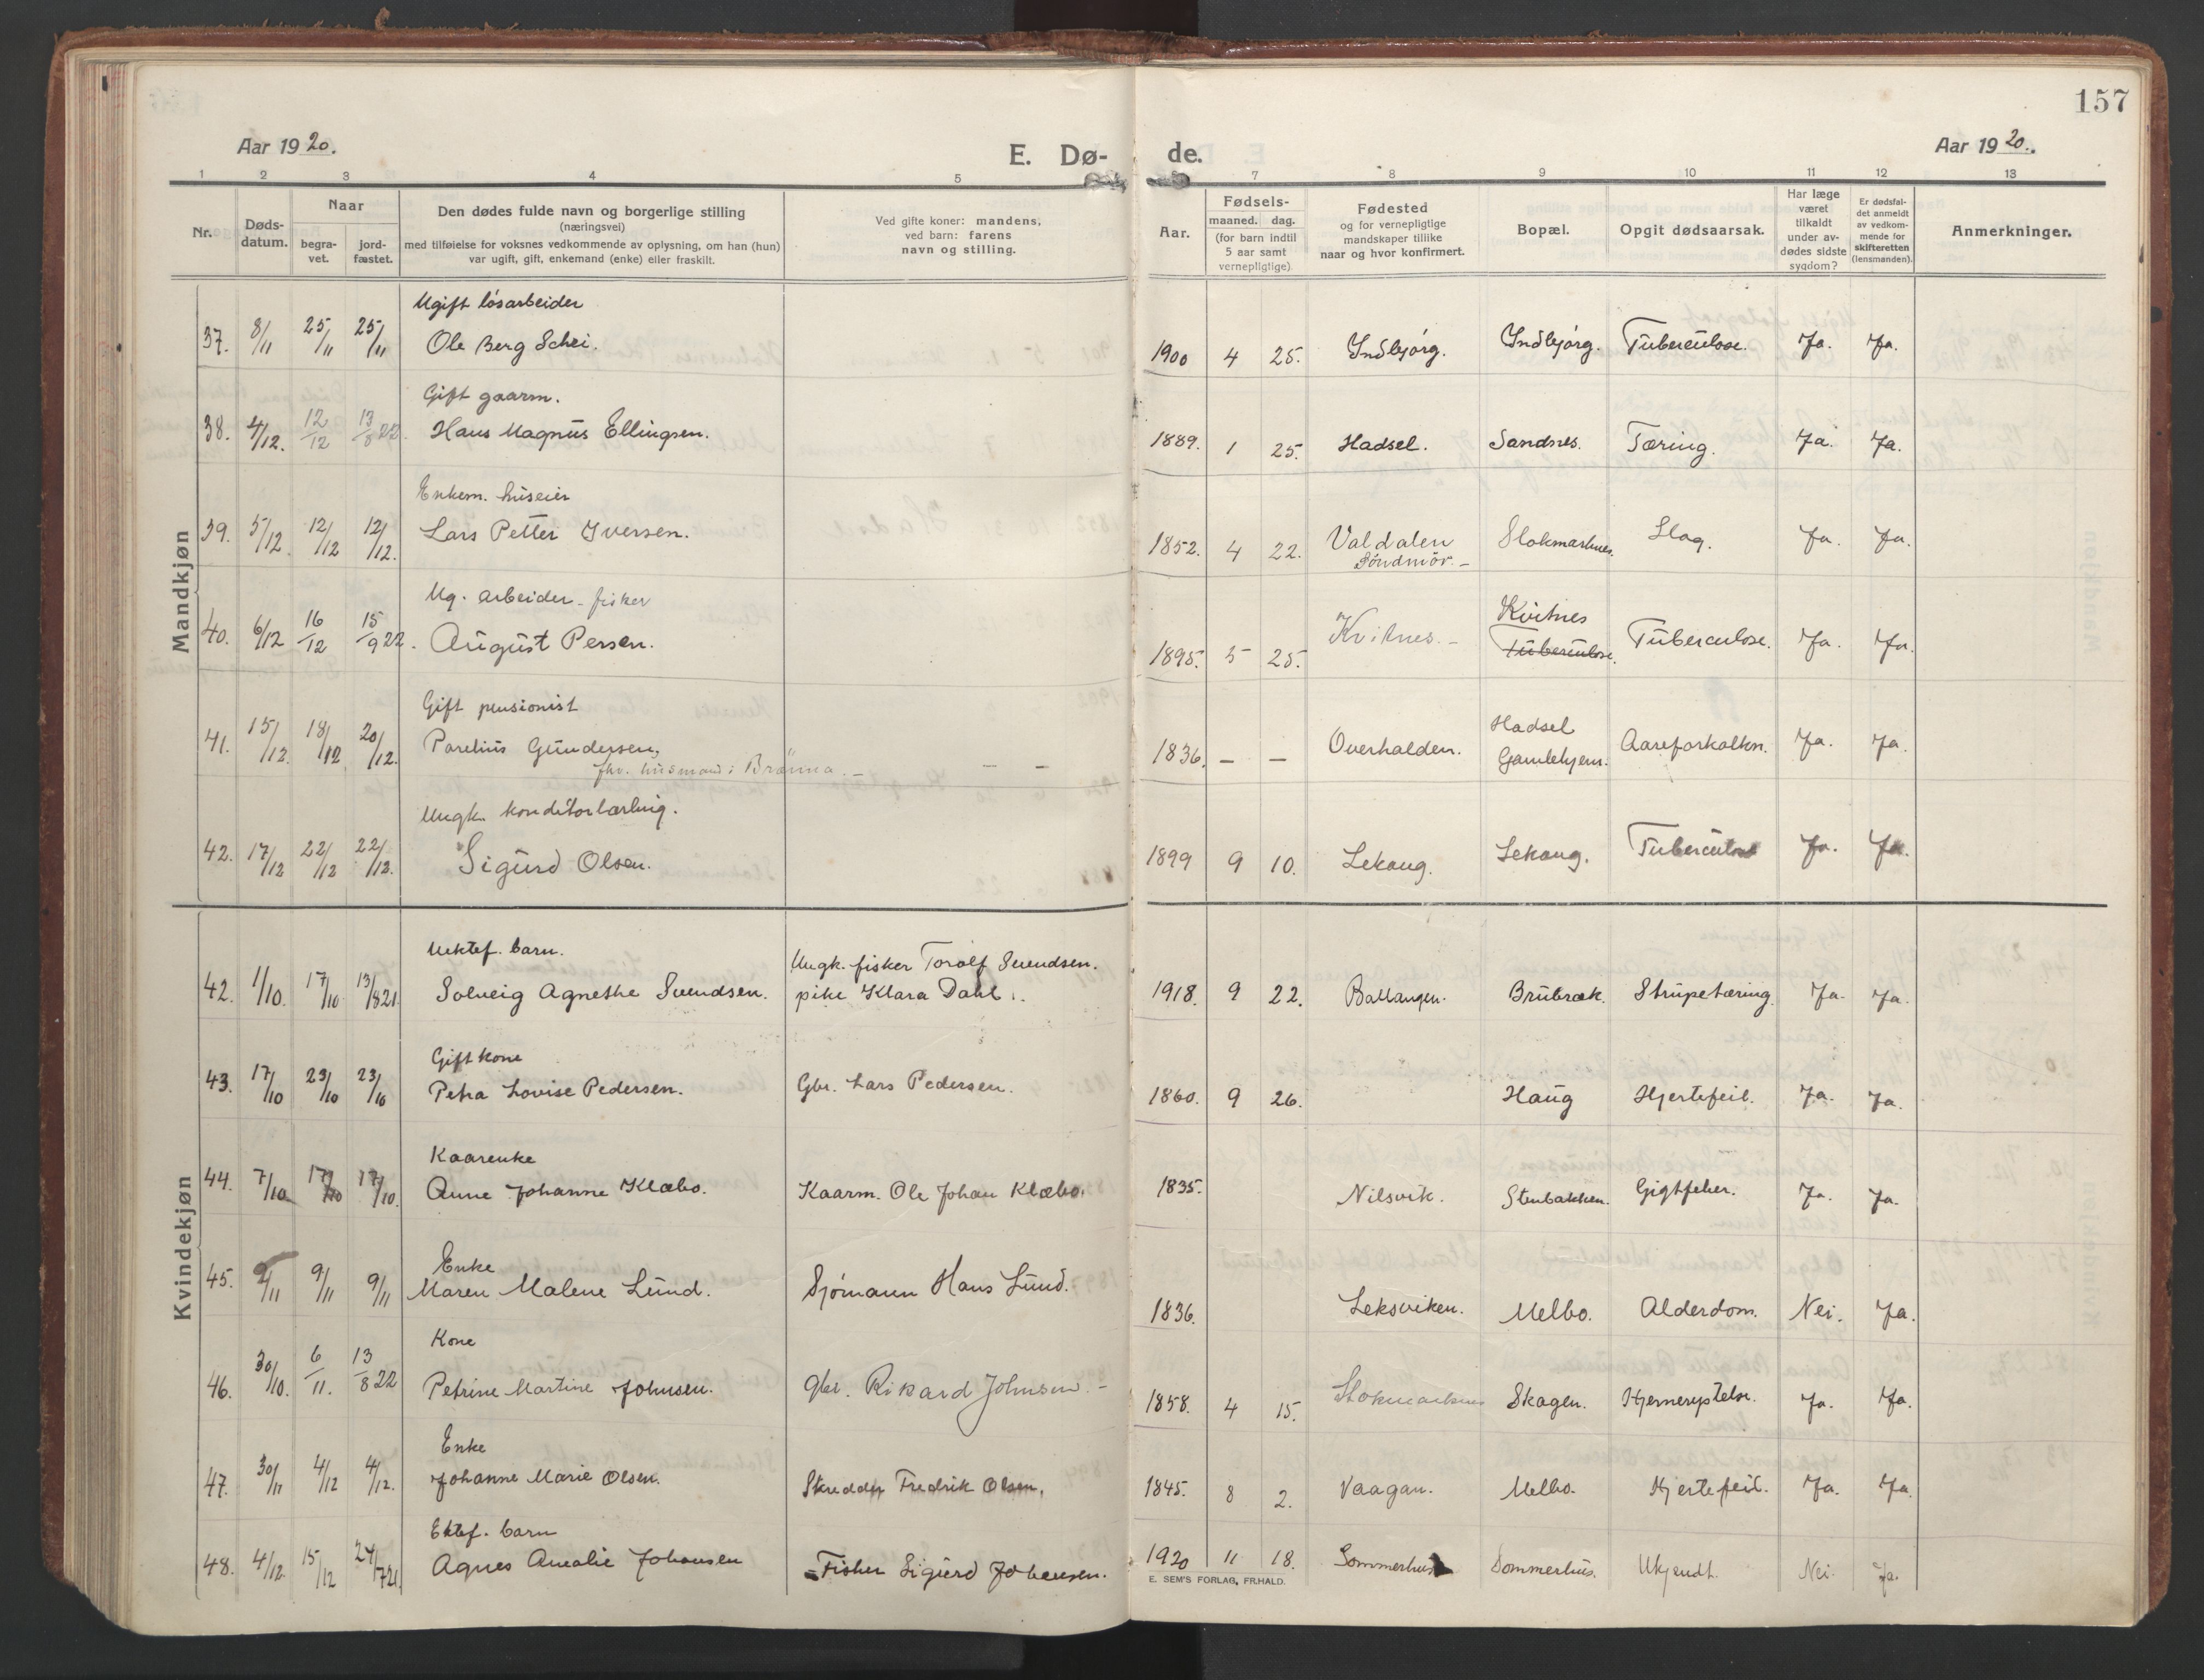 157
Aar 1920.
E. Dø-
de.
Aar 1920.
1 2 3 4 5 7 8 9 10 11 12 13
Nr.
Døds-
datum.
Naar
begra-
vet.
jord-
fæstet.
Den dødes fulde navn og borgerlige stilling
(næringsvei)
med tilføielse for voksnes vedkommende av oplysning, om han (hun)
var ugift, gift, enkemand (enke) eller fraskilt.
Ved gifte koner: mandens,
ved barn: farens
navn og stilling.
Aar.
Fødsels-
maaned. dag.
(for barn indtil
5 aar samt
vernepligtige)
Fødested
og for vernepligtige
mandskaper tillike
naar og hvor konfirmert.
Bopæl.
Opgit dødsaarsak.
Har læge
været
tilkaldt
under av-
dødes sidste
sygdom?
Er dødsfal-
det anmeldt
av vedkom-
mende for
skifteretten
(lensmanden).
Anmerkninger.
Mandkjøn
Ugift løsarbeider
37. 8/11 25/11 25/11 Ole Berg Schei. 1900 4 25. Indbjørg. Indbjørg. Tuberculose. Ja. Ja.
Gift gaarm.
38. 4/12. 12/12 13/8 22. Hans Magnus Ellingsen. 1889. 1 25. Hadsel. Sandnes. Tæring. Ja. Ja.
Enkem. huseier
39. 5/12 12/12 12/12. Lars Petter Iversen. 1852. 4 22. Valdalen Stokmarknes. Slag. Ja. Ja.
Søndmør.-
Ug. arbeider - fisker Kvitnes
40. 6/12 16/12 15/9 22. August Persen. 1895. 5 25. Kvitnes.- Tuberculose. Tuberculose. Ja. Ja.
Gift pensionist Hadsel
41. 15/12. 18/12 20/12. Parelius Gundersen, 1836. - - Overhalden. Gamlehjem. Aareforkalkn. Ja. Ja.
fhv. husmand i Brønna.- - -
Ungk. konditorlærling.
42. 17/12 22/12 22/12. Sigurd Olsen. 1899 9 10. Lekang. Lekang. Tuberculose Ja. Ja.
Kvindekjøn
Uektef. barn. Ungk. fisker Torolf Svendsen.
42. 1/10. 17/10 13/8 21. Solveig Agnethe Svendsen. pike Klara Dahl. 1918. 9 22. Ballangen. Brubræk. Strupetæring. Ja. Ja.
Gift kone
43. 17/10 23/10 23/10 Petra Lovise Pedersen. Gbr. Lars Pedersen. 1860. 9 26. Haug Hjertefeil. Ja. Ja.
Kaarenke
44. 7/10 17/10 17/10. Anne Johanne Klæbo. Kaarm. Ole Johan Klæbo. 1835. Nilsvik. Stenbakken. Gigtfeber. Ja. Ja.
Enke
45. 2/11 9/11 9/11 Maren Malene Lund. Sjømann Hans Lund. 1836. Leksviken. Melbo. Alderdom. Nei. Ja.
Kone
46. 30/10. 6/11. 13/8 22 Petrine Martine Johnsen. gbr. Rikard Johnsen.- 1858. 4 15. Stokmarknes Skagen. Hjernerystelse. Ja. Ja.
Enke
47. 30/11 4/12 4/12. Johanne Marie Olsen. Skredder Fredrik Olsen. 1845. 8 2. Vaagan. Melbo. Hjertefeil. Ja. Ja.
Ektef. barn
48. 4/12. 15/12 24/7 21. Agnes Amalie Johansen Fisker Sigurd Johansen. 1920 11 18. Sommerhus Sommerhus. Ukjendt. Nei. Ja.
E. SEM'S FORLAG, FR.HALD.